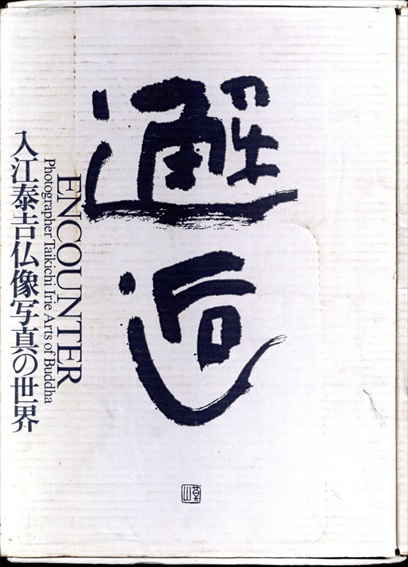 邂逅
ENCOUNTER
Photographer Taikichi Irie Arts of Buddha
入江泰吉仏像写真の世界